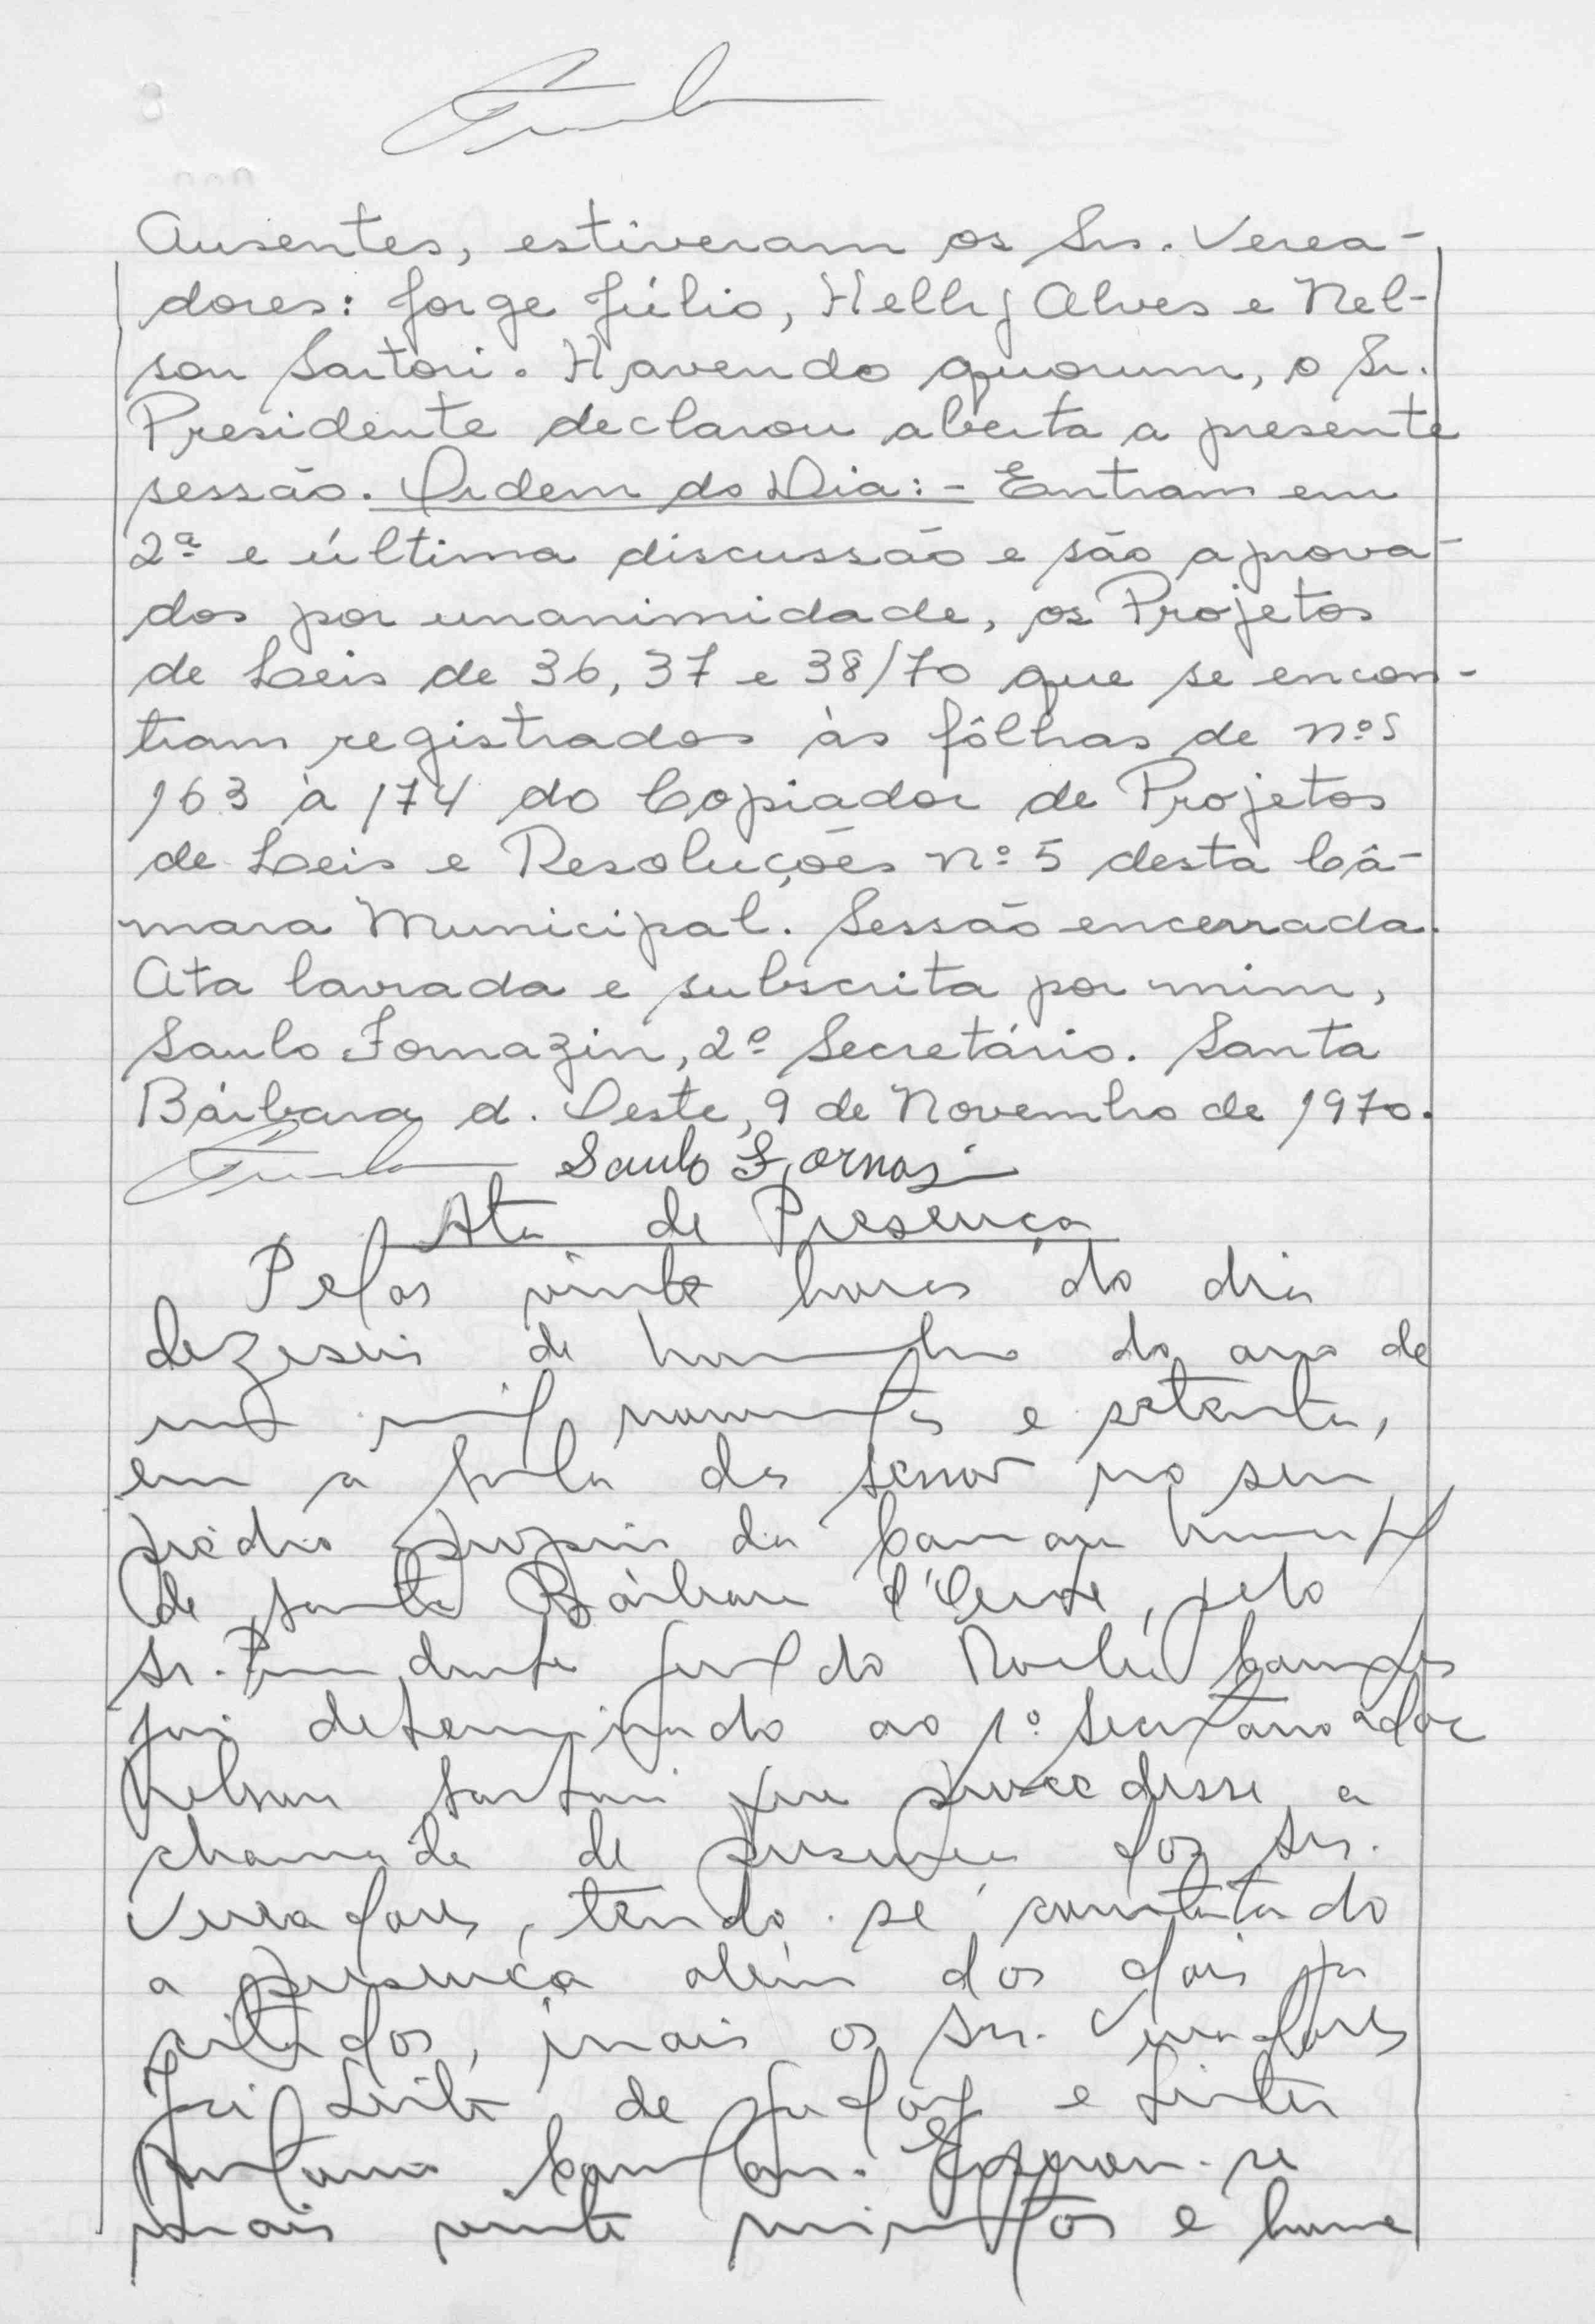 Ausentes, estiveram os Srs. Verea-
dores: Jorge Júlio, Helly Alves e Nel-
son Sartori. Havendo quorum, o Sr.
Presidente declarou aberta a presente
sessão. Ordem do Dia:- Entram em
2ª e última discussão e são aprova-
dos por unanimidade, os Projetos
de Leis de 36, 37 e 38/70 que se encon-
tram registrados às fôlhas de nºs
163 à 174 do Copiador de Projetos
de Leis e Resoluções nº 5 desta Câ-
mara Municipal. Sessão encerrada.
Ata lavrada e subscrita por mim,
Saulo Fornazin, 2º Secretário. Santa
Bárbara d. Oeste, 9 de Novembro de 1970.
Saulo Fornazin
Ata de Presença
Pelas vinte horas do dia
dezeseis de novembro do ano de
um mil novecentos e setenta,
em a sala das sessões no seu
prédio proprio da Camara Municipal
de Santa Bárbara d'Oeste, pelo
Sr. Presidente
foi determinado ao 1º Secretario
Nelson Sartori que procedesse a
chamada de presença dos Srs.
Vereadores, tendo-se constatado
a presença além dos dois ja
citados, mais os Srs. Vereadores
Leite de e
Esperou-se
mais vinte minutos e